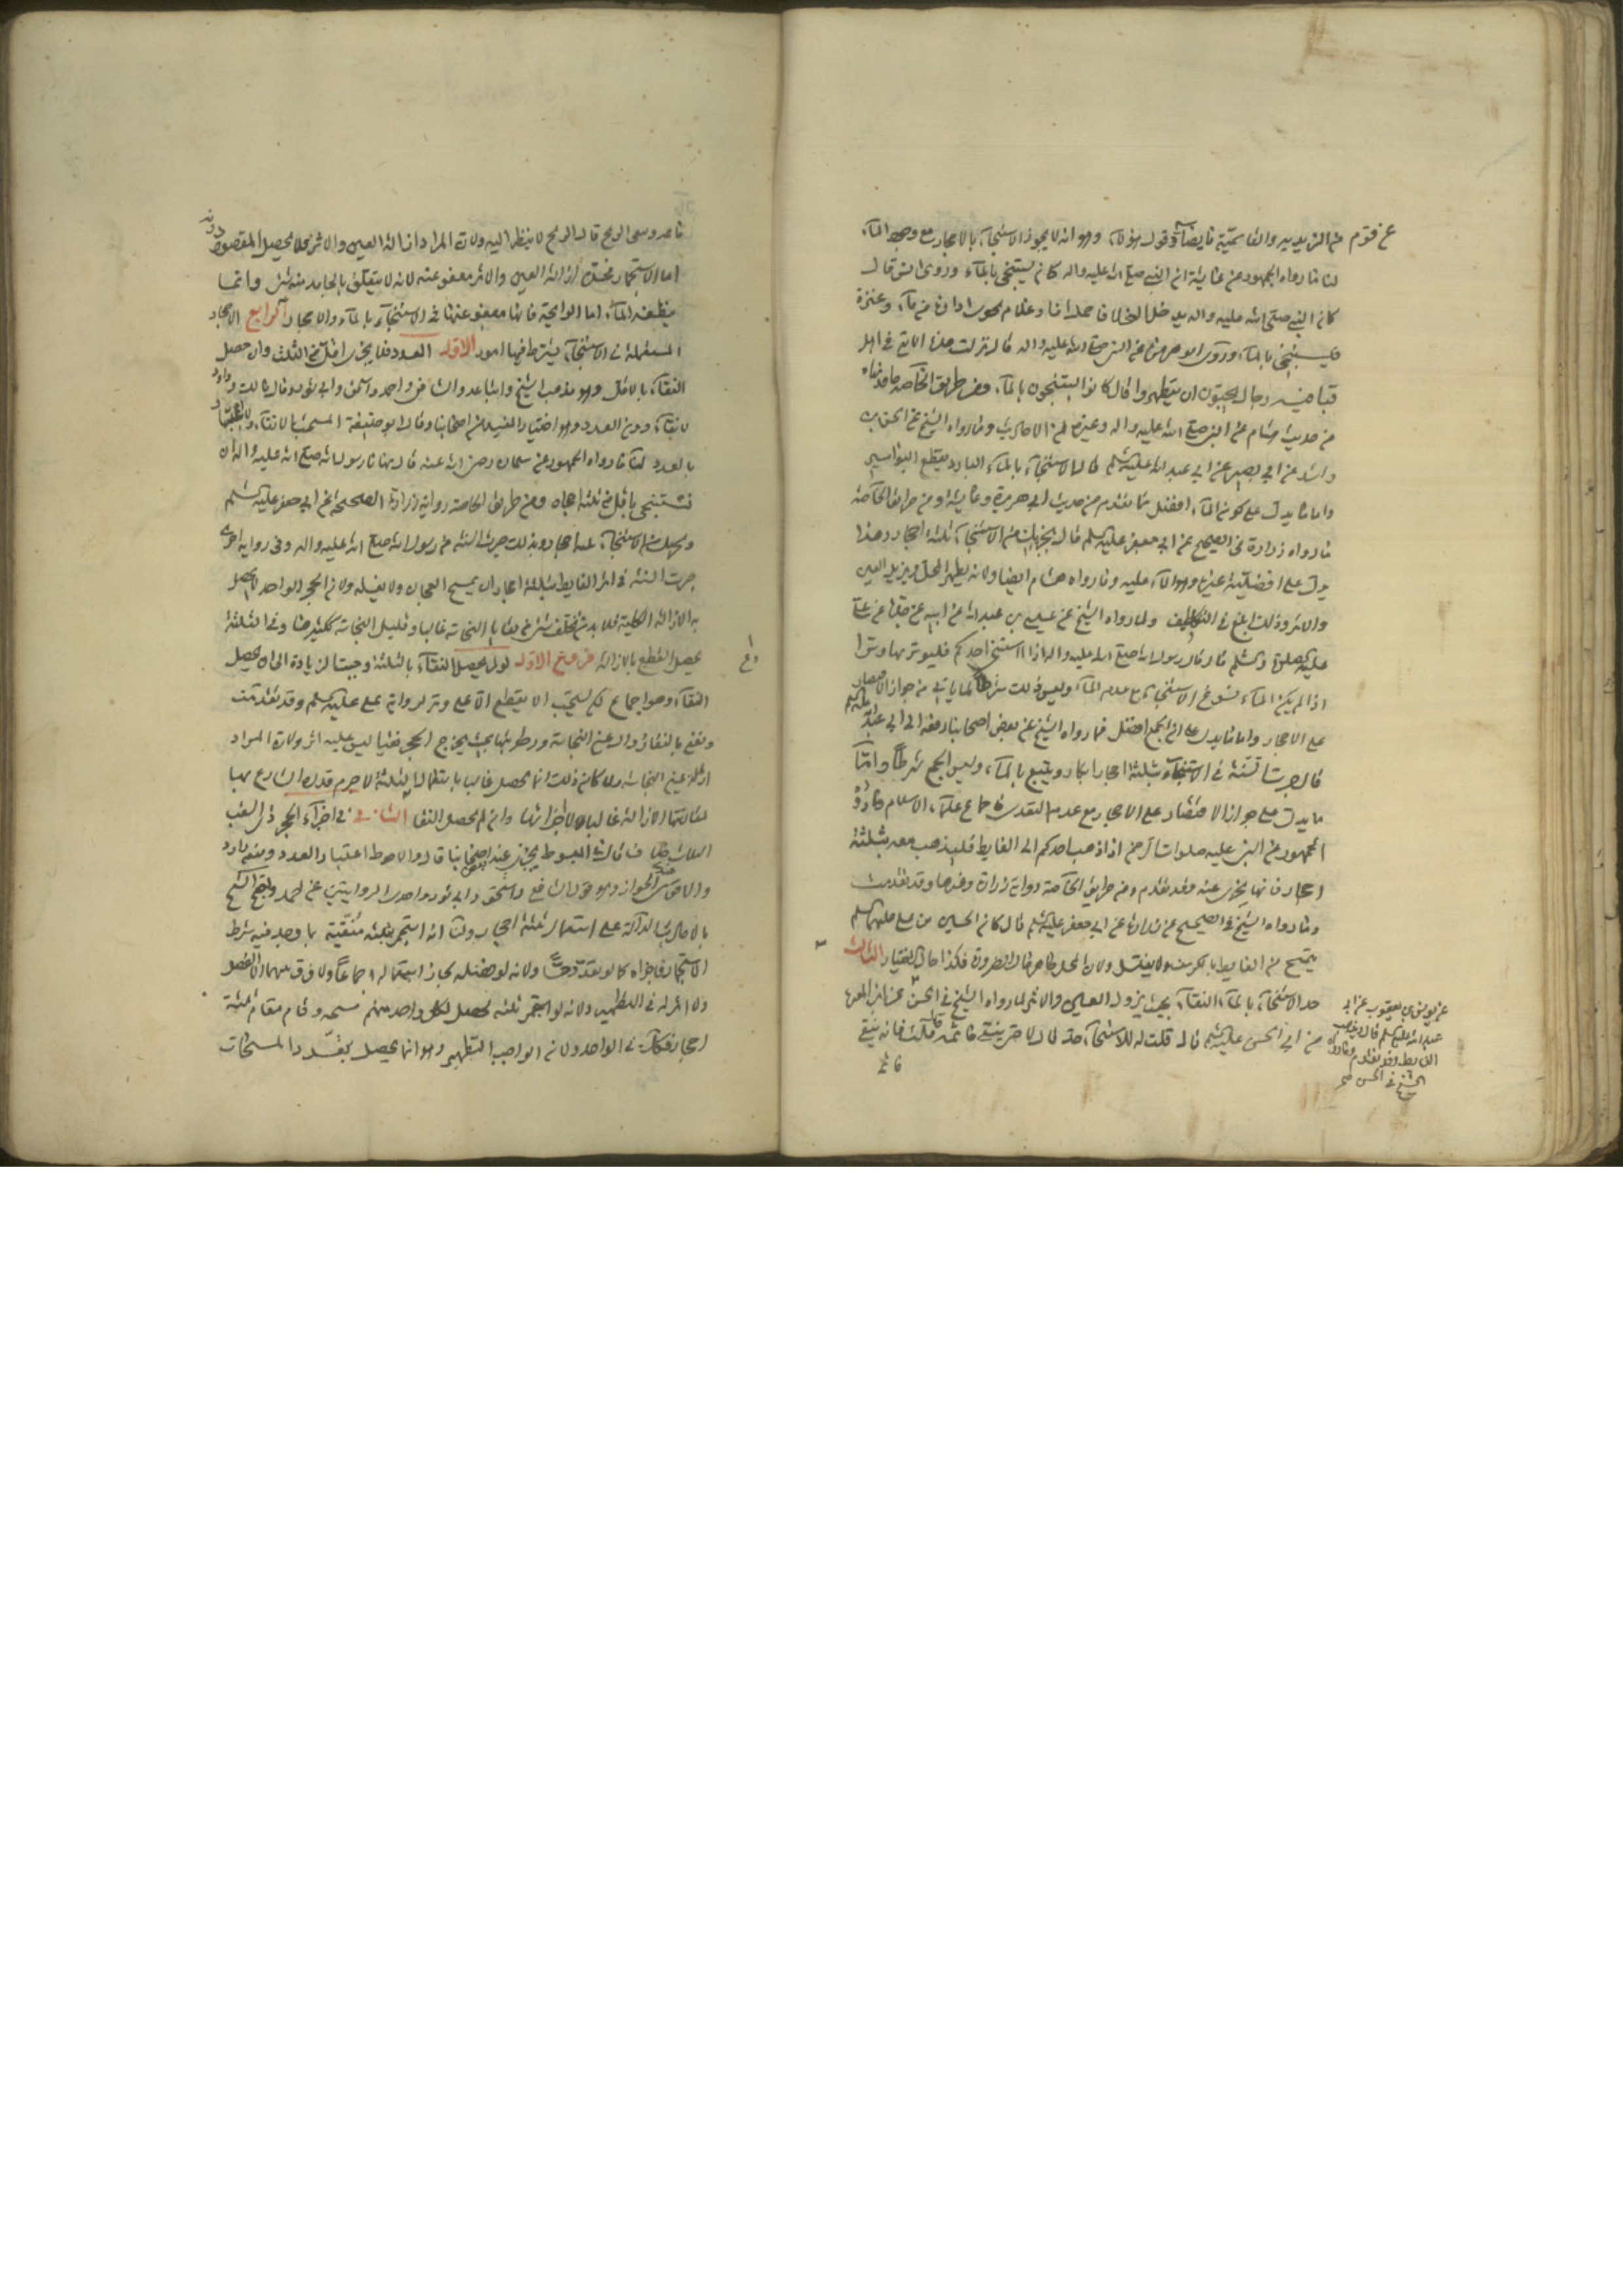 عن قوم من الزيدية والقاسمية ما يضاد قول هؤلاء وهو انه لا يجوز الاستنجاء بالاحجار مع وجود الماء
لنا ما رواه الجمهور عن عائشة ان النبي صلى الله عليه واله كان يستنجي بالماء وروى انس قال
كان النبي صلى الله عليه واله يدخل الخلا فاحمل انا وغلام نحوي اداوة من ماء وعنزة
فيستنجي بالماء وروى ابو هريرة عن النبي صلى الله عليه واله قال نزلت هذه الاية في اهل
قبا فيه رجال يحبون ان يتطهروا قال كانوا يستنجون بالماء ومن طريق الخاصة ما قدمناه
من حديث هشام عن النبي صلى الله عليه واله وغيره من الاحاديث وما رواه الشيخ عن
راشد عن ابي بصير عن ابي عبد الله عليه السلم قال الاستنجاء بالماء البارد يقطع البواسير
واما ما يدل على كون الماء افضل ما تقدم من حديث ابي هريرة وعائشة ومن طريق الخاصة
ما رواه زرارة في الصحيح عن ابي جعفر عليه السلم قال يجزيك من الاستنجاء ثلثة احجار وهذا
يدل على افضلية غيره وهو الماء عليه وما رواه هشام ايضا ولانه يطهر المحل ويزيل العين
والاثر وذلك ابلغ في التنظيف ولما رواه الشيخ عن عيسى بن عبد الله عن ابيه عن جده عن علي
عليه الصلوة والسلم قال قال رسول الله صلى الله عليه واله اذا استنجى احدكم فليوتر بها وترا
اذا لم يكن الماء يسوغ الاستنجاء مع عدم الماء وليس ذلك شرطا لما ياتي من جواز الاقتصار
على الاحجار واما ما يدل على ان الجمع افضل فما رواه الشيخ عن بعض اصحابنا رفعه الى ابي عبد الله عليه السلم
قال جرت السنة في الاستنجاء بثلثة احجار ابكار ويتبع بالماء وليس الجمع شرطا واما
ما يدل على جواز الاقتصار على الاحجار مع عدم التعدي فاجماع علماء الاسلام وما رواه
الجمهور عن النبي عليه صلوات الله من اذا ذهب احدكم الى الغايط فليذهب معه بثلثة
احجار فانها تجزي عنه وقد تقدم ومن طريق الخاصة رواية زرارة وغيرها وقد تقدمت
وما رواه الشيخ في الصحيح عن زرارة عن ابي جعفر عليه السلم قال كان الحسين بن علي عليهما السلم
يتمسح من الغايط بالكرسف ولا يغتسل ولان المحل طاهر حال الضرورة فكذا حال الاختيار الثالث
حد الاستنجاء بالماء النقاء بحيث يزول العين والاثر لما رواه الشيخ في الحسن عن ابن المغيرة
عن ابي الحسن عليه السلم قال قلت له للاستنجاء حد قال لا حتى ينقى ما ثمه قال قلت فانه ينقى
ما ثم
عن يونس بن يعقوب عن ابي
عبد الله عليه السلم قال يذهب
الغايط وقد تقدم وما رواه
الشيخ في الحسن صح
ما ثمه ويبقى الريح قال الريح لا ينظر اليه ولان المراد ازالة العين والاثر فلا يحصل المقصود دونه
اما الاستجمار فحده ازالة العين والاثر معفو عنه لانه لا يتعلق بالجامد منه شئ وانما
ينظفه الماء اما الرايحة فانها معفو عنها في الاستنجاء بالماء والاحجار الرابع الاحجار
المستعملة في الاستنجاء يشترط فيها امور الاول العدد فلا يجزي اقل من الثلث وان حصل
النقاء بالاقل وهو مذهب الشيخ واتباعه والشافعي واحمد واسحق وابي ثور وقال مالك وداود
الانقاء دون العدد وهو اختيار المفيد من اصحابنا وقال ابو حنيفة المستحب الانقاء ولا اعتبار
بالعدد لنا ما رواه الجمهور عن سلمان رضى الله عنه قال نهانا رسول الله صلى الله عليه واله ان
نستنجي باقل من ثلثة احجار ومن طريق الخاصة رواية زرارة الصحيحة عن ابي جعفر عليه السلم
ويجزيك من الاستنجاء ثلثة احجار وبذلك جرت السنة من رسول الله صلى الله عليه واله وفي رواية اخرى
جرت السنة في اثر الغايط بثلثة احجار ان يمسح العجان ولا يغسله ولان الحجر الواحد لا يحصل
به الازالة الكلية فلا بد من تخلف شئ من بقايا النجاسة غالبا وقليل النجاسة ككثيرها وفي الثلثة
يحصل القطع بالازالة فروع الاول لو لم يحصل النقاء بالثلثة وجبت الزيادة الى ان يحصل
النقاء وهو اجماع لكن يستحب الا يقطع الا على وتر لرواية علي عليه السلم وقد تقدمت
ونعني بالنقاء زوال عين النجاسة ورطوبتها بحيث يخرج الحجر نقيا ليس عليه اثر ولان المراد
ازالة عين النجاسة ولما كان ذلك انما يحصل غالبا باستعمال الثلثة لا جرم قدره الشارع بها
الثاني في اجزاء الحجر ذي الشعب
قال في المبسوط يجزي عند بعض اصحابنا قال والاحوط اعتبار العدد ومنع داود
والاقرب عندي الجواز وهو قول الشافعي واسحق وابي ثور واحدى الروايتين عن احمد واحتج الشيخ
بالاحاديث الدالة على استعمال ثلثة احجار ولنا انه استجمر بثلثة منقية بما وجد فيه شرط
الاستجمار فاجزاه كما لو تعدد حسا ولانه لو فصله لجاز استعماله اجماعا ولا فرق بينهما اذ الفصل
لا اثر له في التطهير ولانه لو استجمر ثلثة لحصل لكل واحد منهم مسحة وقام مقام ثلثة
احجار فكذا في الواحد ولان الواجب التطهير وهو انما يحصل بتعدد المسحات